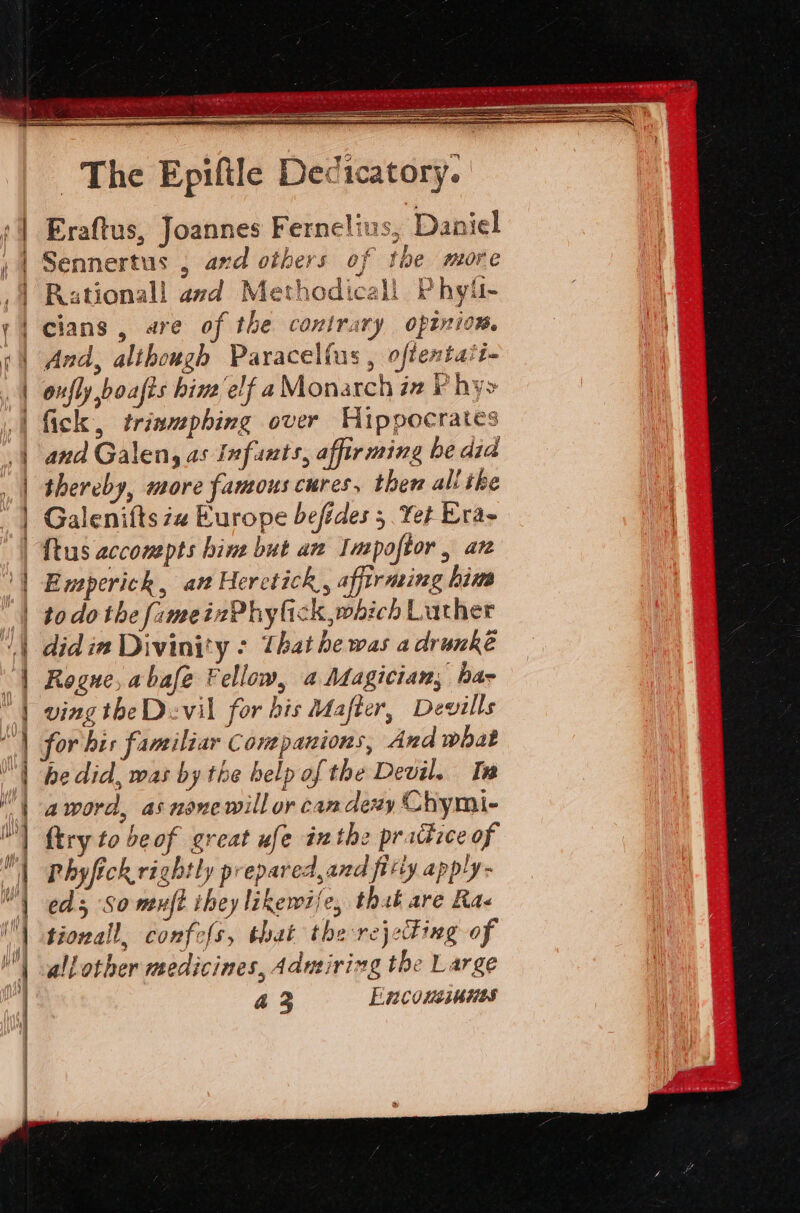 The Epiſtle Dedicatory.
Eraſtus, Joannes Fernelius, Daniel
Sennertus, and others of the more
Rationall and Methodicall Phyſi-
cians, are of the contrary opinion.
And, although Paracelſus, oſtentati-
ouſly boaſts himſelf a Monarch in Phy-
ſick, triumphing over Hippocrates
and Galen, as Infants, affirming he did
thereby, more famous cures, then all the
Galeniſts in Europe beſides; Yet Era-
ſtus accompts him but an Impoſtor, an
Emperick, an Heretick, affirming him
to do the ſame in Phyſick, which Luther
did in Divinity: That he was a drunkē
Rogue, a baſe Fellow, a Magician, ha-
ving the Devil for his Maſter, Devills
for his familiar Companions, And what
he did, was by the help of the Devil. In
a word, as none will or can deny Chymi-
ſtry to be of great uſe in the practice of
Phyſick rightly prepared, and fitly apply-
ed; So muſt they likewiſe, that are Ra-
tionall, confeſs, that the rejecting of
all other medicines, Admiring the Large
a 3 Encomiums